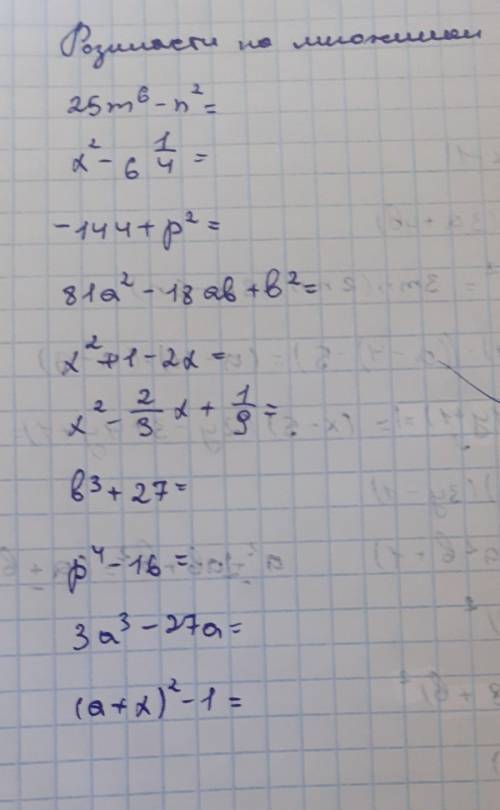 Розкласти на множники
25m⁶ - n² =
x² - 6 1/4 =
-144 + p² =
81a² - 18ab + b² =
x² + 1 - 2x =
x² - 2/3 x + 1/9 =
b³ + 27 =
p⁴ - 16 =
3a³ - 27a =
(a + x)² - 1 =